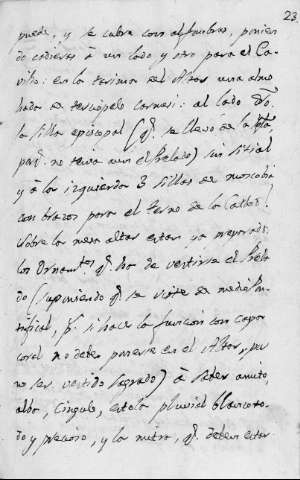 23
puede, y se cubra con alfombras, ponien
do cogines à un lado, y otro para el Ca
vildo: en la tarima del Altar una almo
hada de terciopelo carmesi: al lado dro.
la silla episcopal (q.e se llevó de la
parq.e no tenia aun el Prelado) sin sitial
y à la izquierda 3 sillas de moscobia
con brazos para el terno de la Cated.l
sobre la mesa altar estan ya preparad.s
los Ornamtos. q.e ha de vestirse el Prela
do (suponiendo q.e se viste de medio Pon
tifical, p.s si hace la funcion con capa
coral no deben ponerse en el Altar, por
no ser vestido sagrado) à saber amito,
alba, Cingulo, estola pluvial blanco to
do y precioso, y la mitra, q.e deben estar